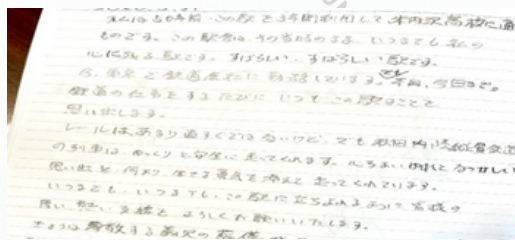 私は50年前 この駅を3年間利用して 米内沢高校に通
ものです。この駅舎は、その当時のまま、いつまでも私の
心に残る駅です。すばらしい、すばらしい駅です。
今、東京で鉄道会社に勤務しています。 今日まで、
鉄道の仕事をするたびに いつもこの駅のことを
思い出します。
レールは、あまり直すぐではないけど、でも秋田内陸縦貫鉄道
の列車は、ゆっくりと安全に走ってくれます。心よい 揺れと なつかしい
思い出と、何より 生きる勇気を 添えて 走ってくれています。
いつまでも、いつまでも、この駅に立ちよれるように 皆様の
厚い 熱い 支援を よろしくお願いいたします。
きょうは 尊敬する 義兄の 葬儀